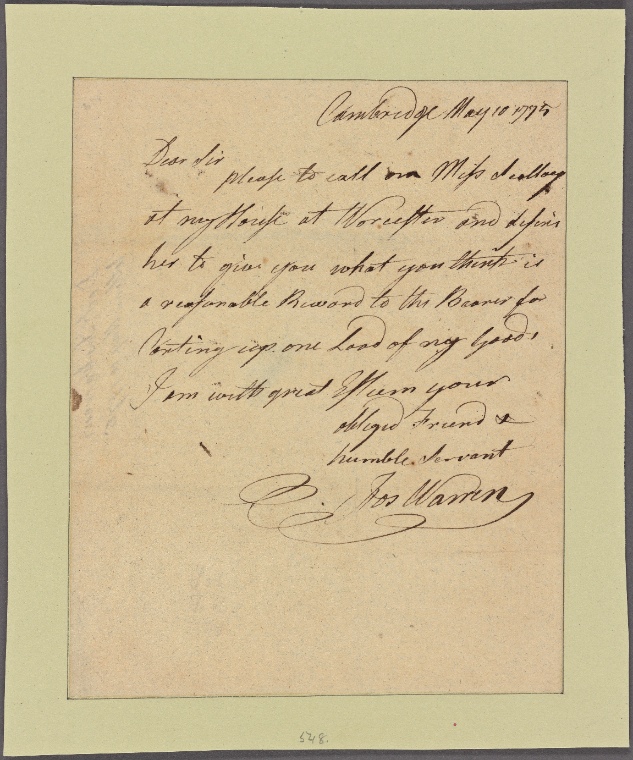 Cambridge May 10 1775
Dear Sir
please to call on Miss Scollay
at my House at Worcester and desire
her to give you what you think is
a reasonable Reward to the Bearer for
Carting up one Load of my Goods
I am with great Esteem your
obliged Friend &
humble Servant
Jos Warren
548.